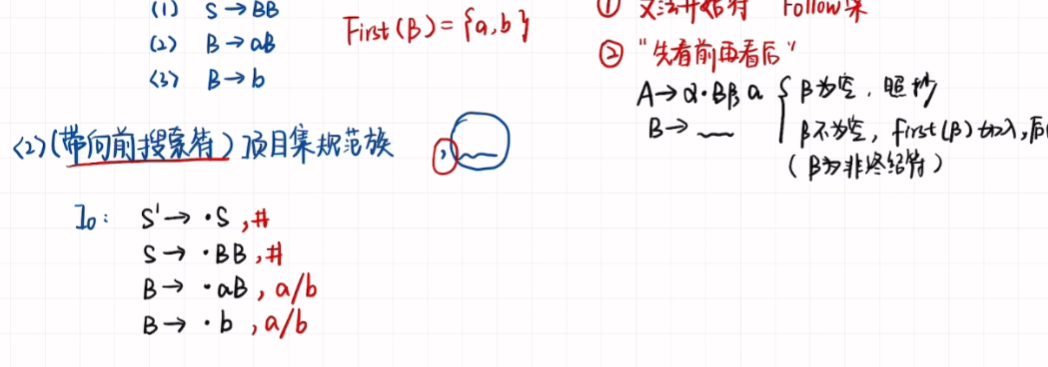 (1) S→BB
(2) B→aB
(3) B→b
First(B)={a,b}
① 文法开始符 Follow集
② "先看前再看后"
A→α·Bβ,a { β为空,照抄
B→ β不为空,first(β)加入,后
(β为非终结符)
(2)(带向前搜索符)项目集规范族
,
I₀: S'→·S,#
S→·BB,#
B→·aB,a/b
B→·b,a/b